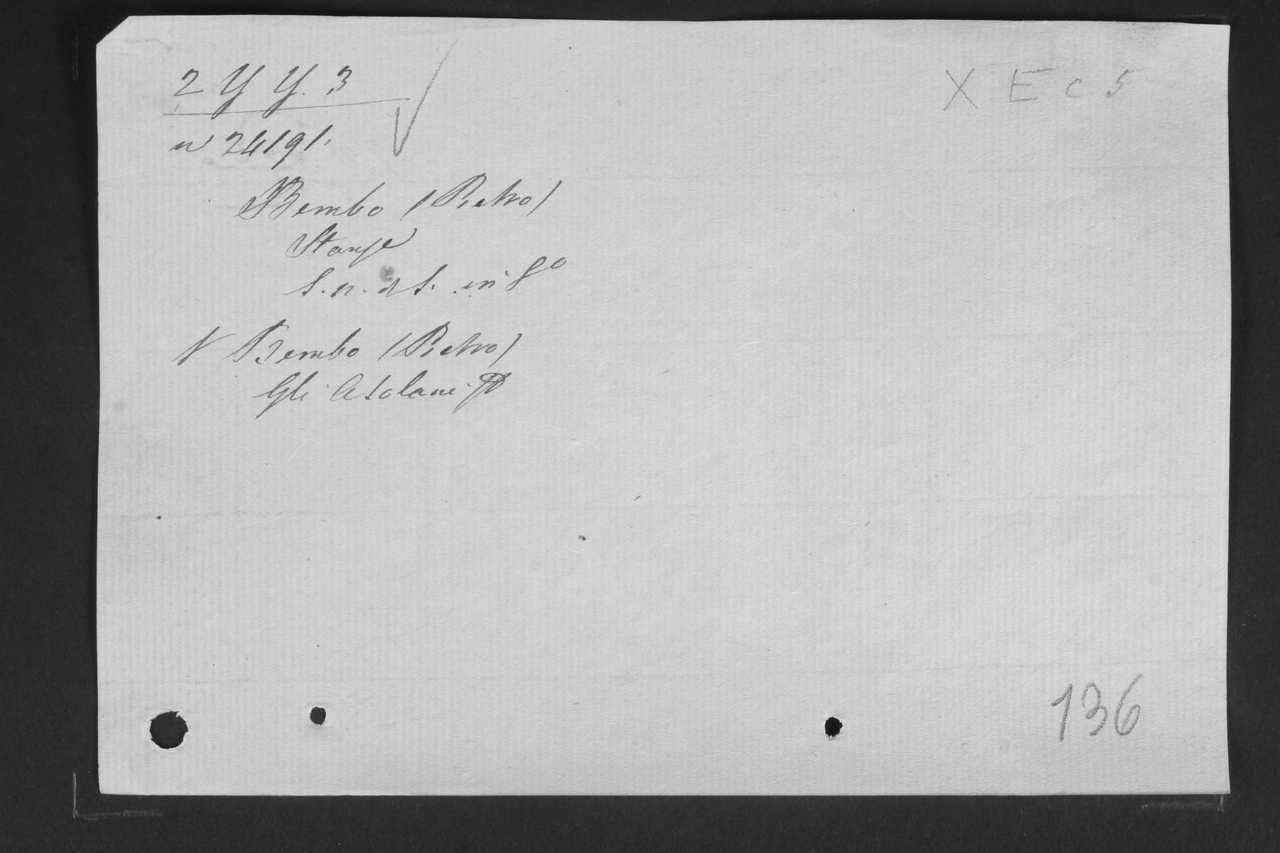 2 Y Y. 3
X E C 5
n 24191.
Bembo (Pietro)
Stanze
S. n. d. l. in 8º
V Bembo (Pietro)
Gli Asolani
136